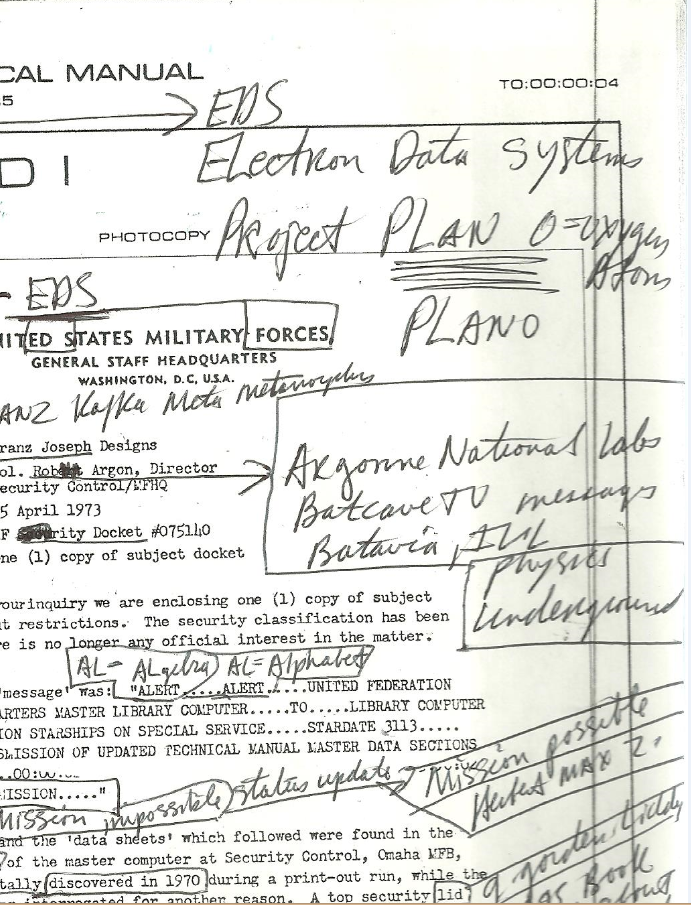 CAL MANUAL
TO:00:00:04
5
EDS
Electron Data Systems
DI
PHOTOCOPY
Project PLAN O=oxygen
Atoms
EDS
PLANO
NITED STATES MILITARY FORCES
GENERAL STAFF HEADQUARTERS
WASHINGTON, D.C, U.S.A.
ANZ Kafka Meta metamorphis
ranz Joseph Designs
ol. Robert Argon, Director
ecurity Control/MFHQ
5 April 1973
F Security Docket #075140
ne (1) copy of subject docket
Argonne National Labs
Batcave TV messages
Batavia, ILL
physics
underground
yourinquiry we are enclosing one (1) copy of subject
ut restrictions. The security classification has been
re is no longer any official interest in the matter.
AL= ALgebra) AL=Alphabet
'message' was: "ALERT.....ALERT.....UNITED FEDERATION
ARTERS MASTER LIBRARY COMPUTER.....TO.....LIBRARY COMPUTER
ION STARSHIPS ON SPECIAL SERVICE.....STARDATE 3113.....
SMISSION OF UPDATED TECHNICAL MANUAL MASTER DATA SECTIONS
..00:
MISSION....."
Mission impossible) status update
Mission possible
MAX 2.
and the 'data sheets' which followed were found in the
of the master computer at Security Control, Omaha MFB,
tally discovered in 1970 during a print-out run, while the
interrogated for another reason. A top security lid
g gorden Liddy
as Book